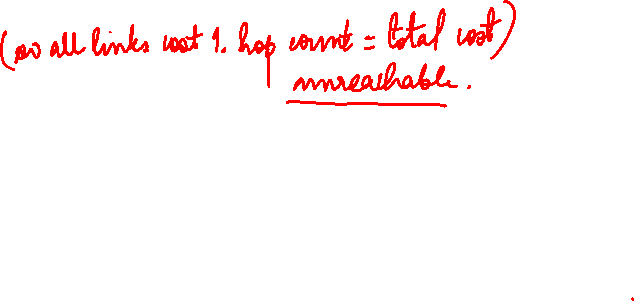 (so all links cost 1. hop count = total cost)
unreachable.